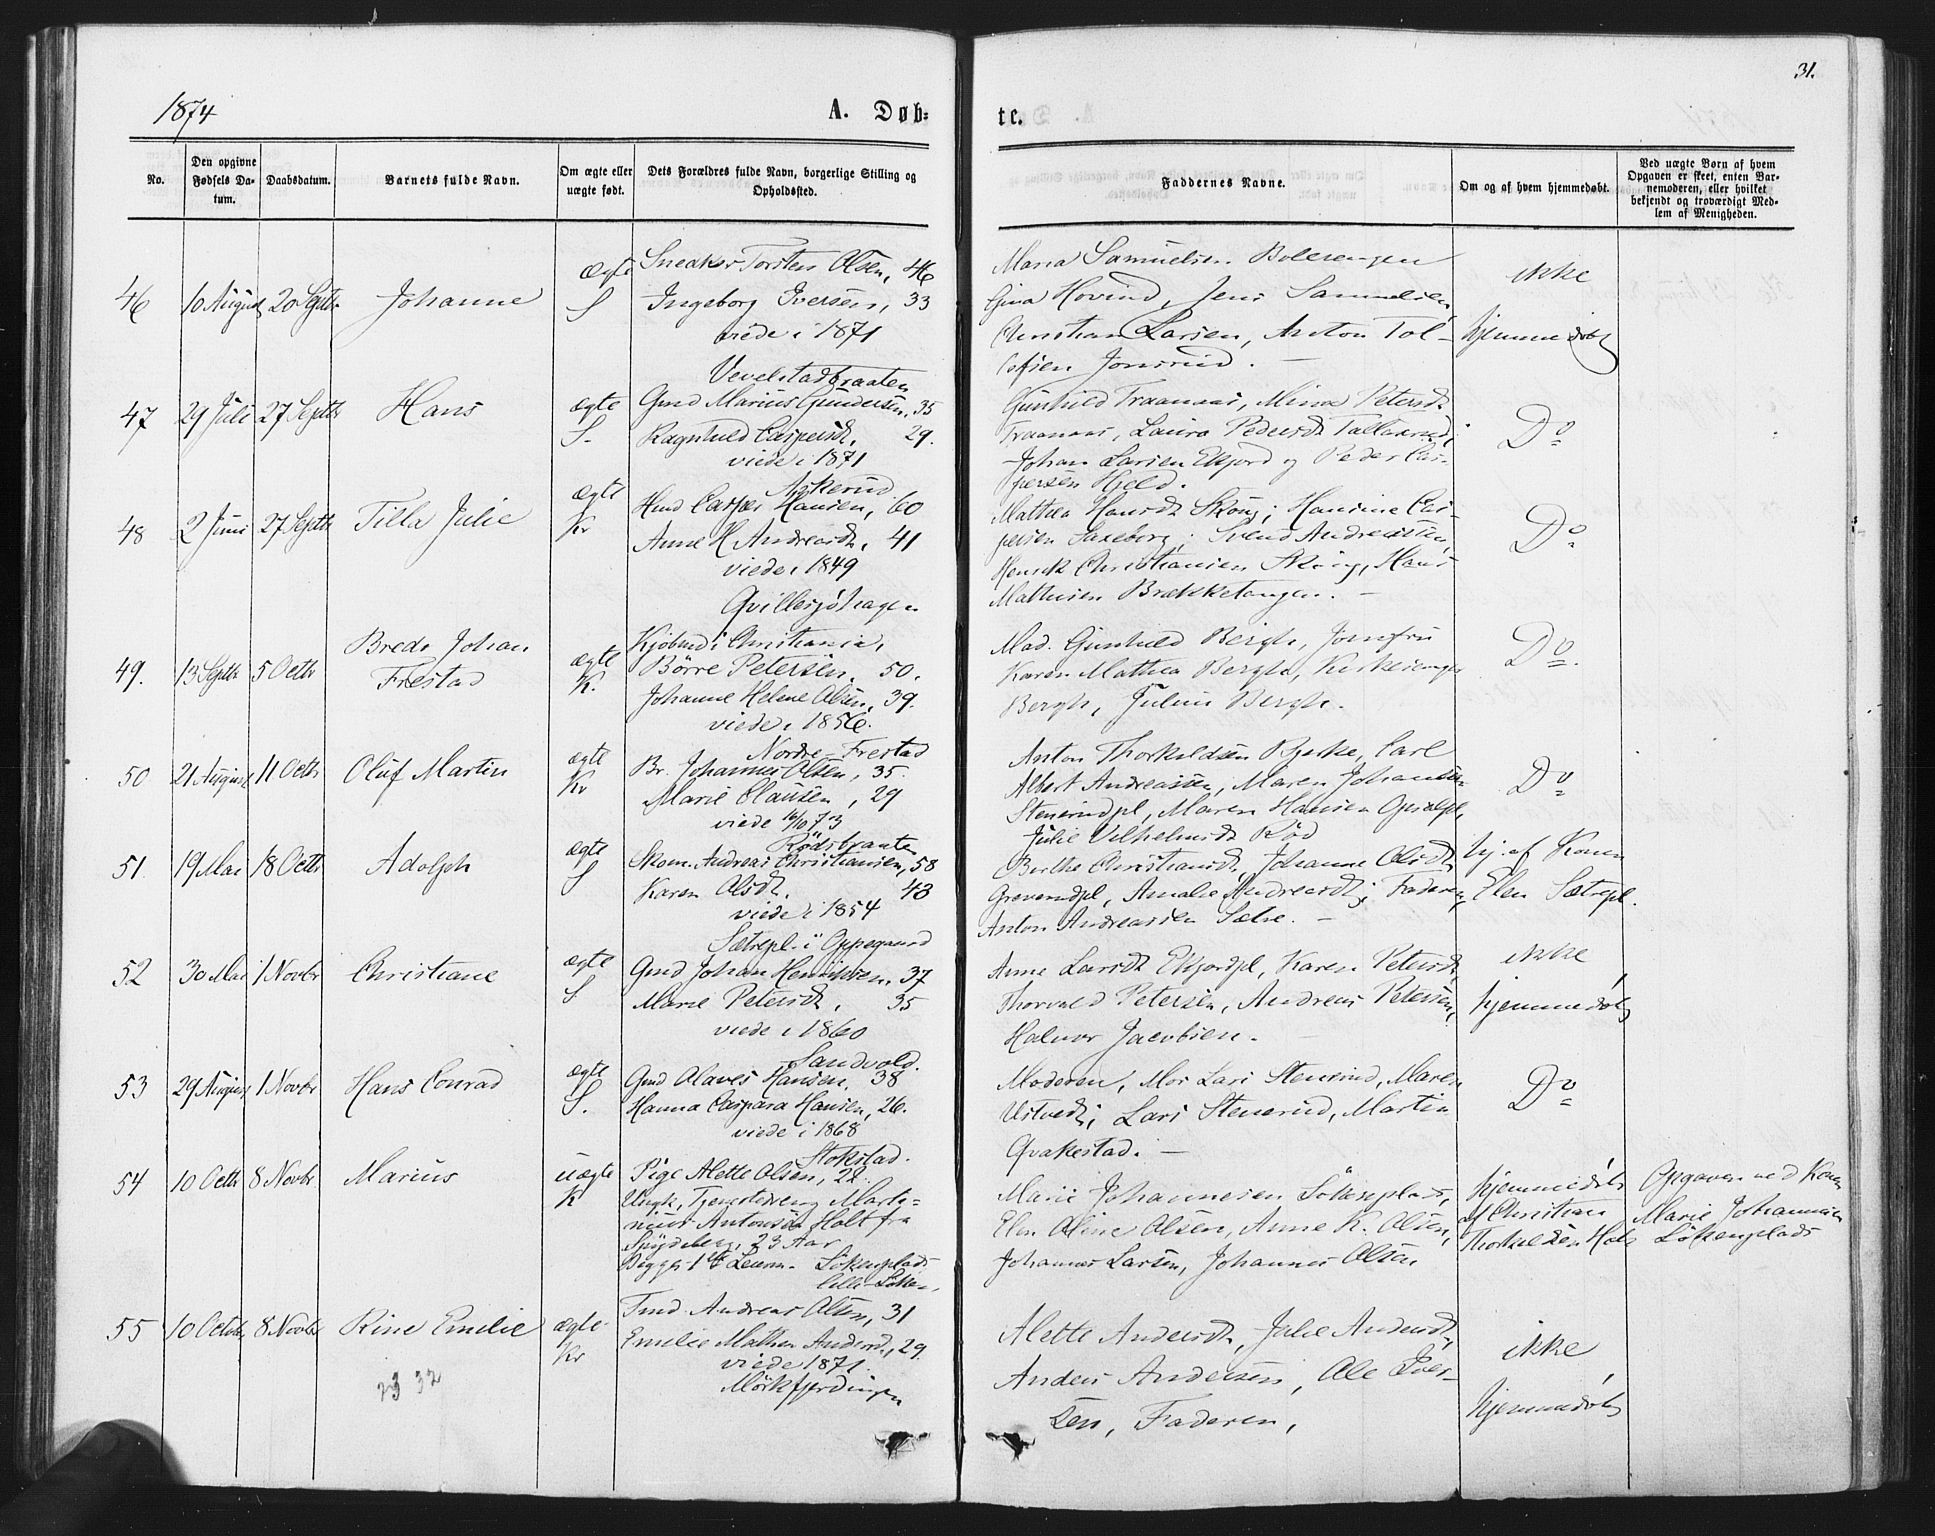 31.
1874
A. Døb=
te.
No.
Den opgivne Fødsels Da-tum.
Daabsdatum.
Barnets fulde Navn.
Om ægte eller uægte født.
Dets Forældres fulde Navn, borgerlige Stilling og Opholdssted.
Faddernes Navne.
Om og af hvem hjemmedøbt.
Ved uægte Børn af hvem Opgaven er skeet, enten Bar-nemoderen, eller hvilket bekjendt og troværdigt Med-lem af Menigheden.
46 10 August 20 Septbr Johanne ægte S
Sneaker Torsten Olsen, 46
Ingeborg Iversen, 33
viede i 1871
Vevelstadbraaten
Maria Samuelsen
Gina Hovind, Jens Samuelsen,
Christian Larsen, Anton Tol-
lefsen
ikke
hjemmedøbt
47 29 Juli 27 Septbr Hans ægte S.
Gmd Marius Gundersen, 35
Ragnhild Caspersdt. 29.
viede i 1871
Askerud
Gunhild Traanaas, Mina Petersdt.
Traanaas, Laura Pedersdt
Johan Larsen Ekjord og Peder Cas-
persen Hjeld.
Do
48 2 Juni 27 Septbr Tilla Julie ægte Kr
Hmd Casper Hansen, 60
Anne H. Andreasdt, 41
viede i 1849
Mathea Hansdt Skoug; Hansine Cas-
persen Saxeborg; Svend Andreassen,
Henrik Christiansen Skoug, Hans
Mathisen Brækketangen. —
Do
49. 13 Septbr 5 Octbr Brede Johan Frestad ægte K.
Kjøbmd i Christiania,
Børre Petersen, 50.
Johanne Helene Olsen, 39.
viede i 1856.
Nordre-Frestad
Mad. Gunhild Bergh, Jomfru
Karen Mathea Bergh,
Bergh, Julius Bergh.
Do
50 21 August 11 Octbr Oluf Martin ægte Kr
Br. Johannes Olsen, 35.
Marie Clausen, 29
viede 16/10 73
Rødsbraaten
Anton Thorkildsen Carl
Albert Andreassen, Maren Johansen
Stenerudpl, Maren Hansen
Julie Vilhelmsdt Rød
Do
51. 19 Mai 18 Octbr Adolph ægte S
Skom. Andreas Christiansen, 58
Karen Olsdt. 43
viede i 1854
Sætrepl. i Oppegaard
Berthe Christiansdt, Johanne Olsdt
Greverudpl, Amalie Andreasdt; Faderen,
Anton Andreassen Sætre. —
hj. af Konen
Elen Sætrepl.
52 30 Mai 1 Novbr Christiane ægte S
Gmd Johan Henriksen, 37
Marie Petersdt, 35
viede i 1860
Sandvold.
Anne Larsdt Ekjordpl, Karen Petersdt,
Thorvald Petersen, Andreas Petersen,
Halvor Jacobsen.
ikke
hjemmedøbt
53 29 August 1 Novbr Hans Conrad ægte S.
Gmd Olaves Hansen, 38
Hanna Caspara Hansen, 26.
viede i 1868
Stokstad.
Moderen, Mor Lars Stenerud, Maren
Ustvedt; Lars Stenerud, Martin
Qvakestad. —
Do
54 10 Octbr 8 Novbr Marius uægte K
Pige Alette Olsen, 22
Ungk, Tjenestedreng Marti-
nius Antonsen Holt fra
Spydeberg, 23 Aar
Begges 1ste Leierm.
Marie Johannesen
Elen Oline Olsen, Anne K. Olsen,
Johannes Larsen, Johannes Olsen
hjemmedøbt
af Christian
Thorkildsen
Opgaven ved Konen
Marie Johannesen
55 10 Octbr 8 Novbr Rine Emilie ægte Kr
Tmd. Andreas Olsen, 31
Emilie Mathea Andersd., 29.
viede 1871.
Mørkfjerdingen
Alette Andersdt, Julie Andersdt,
Anders Andersen, Ole Iver-
sen, Faderen,
ikke
hjemmedøbt
23 32